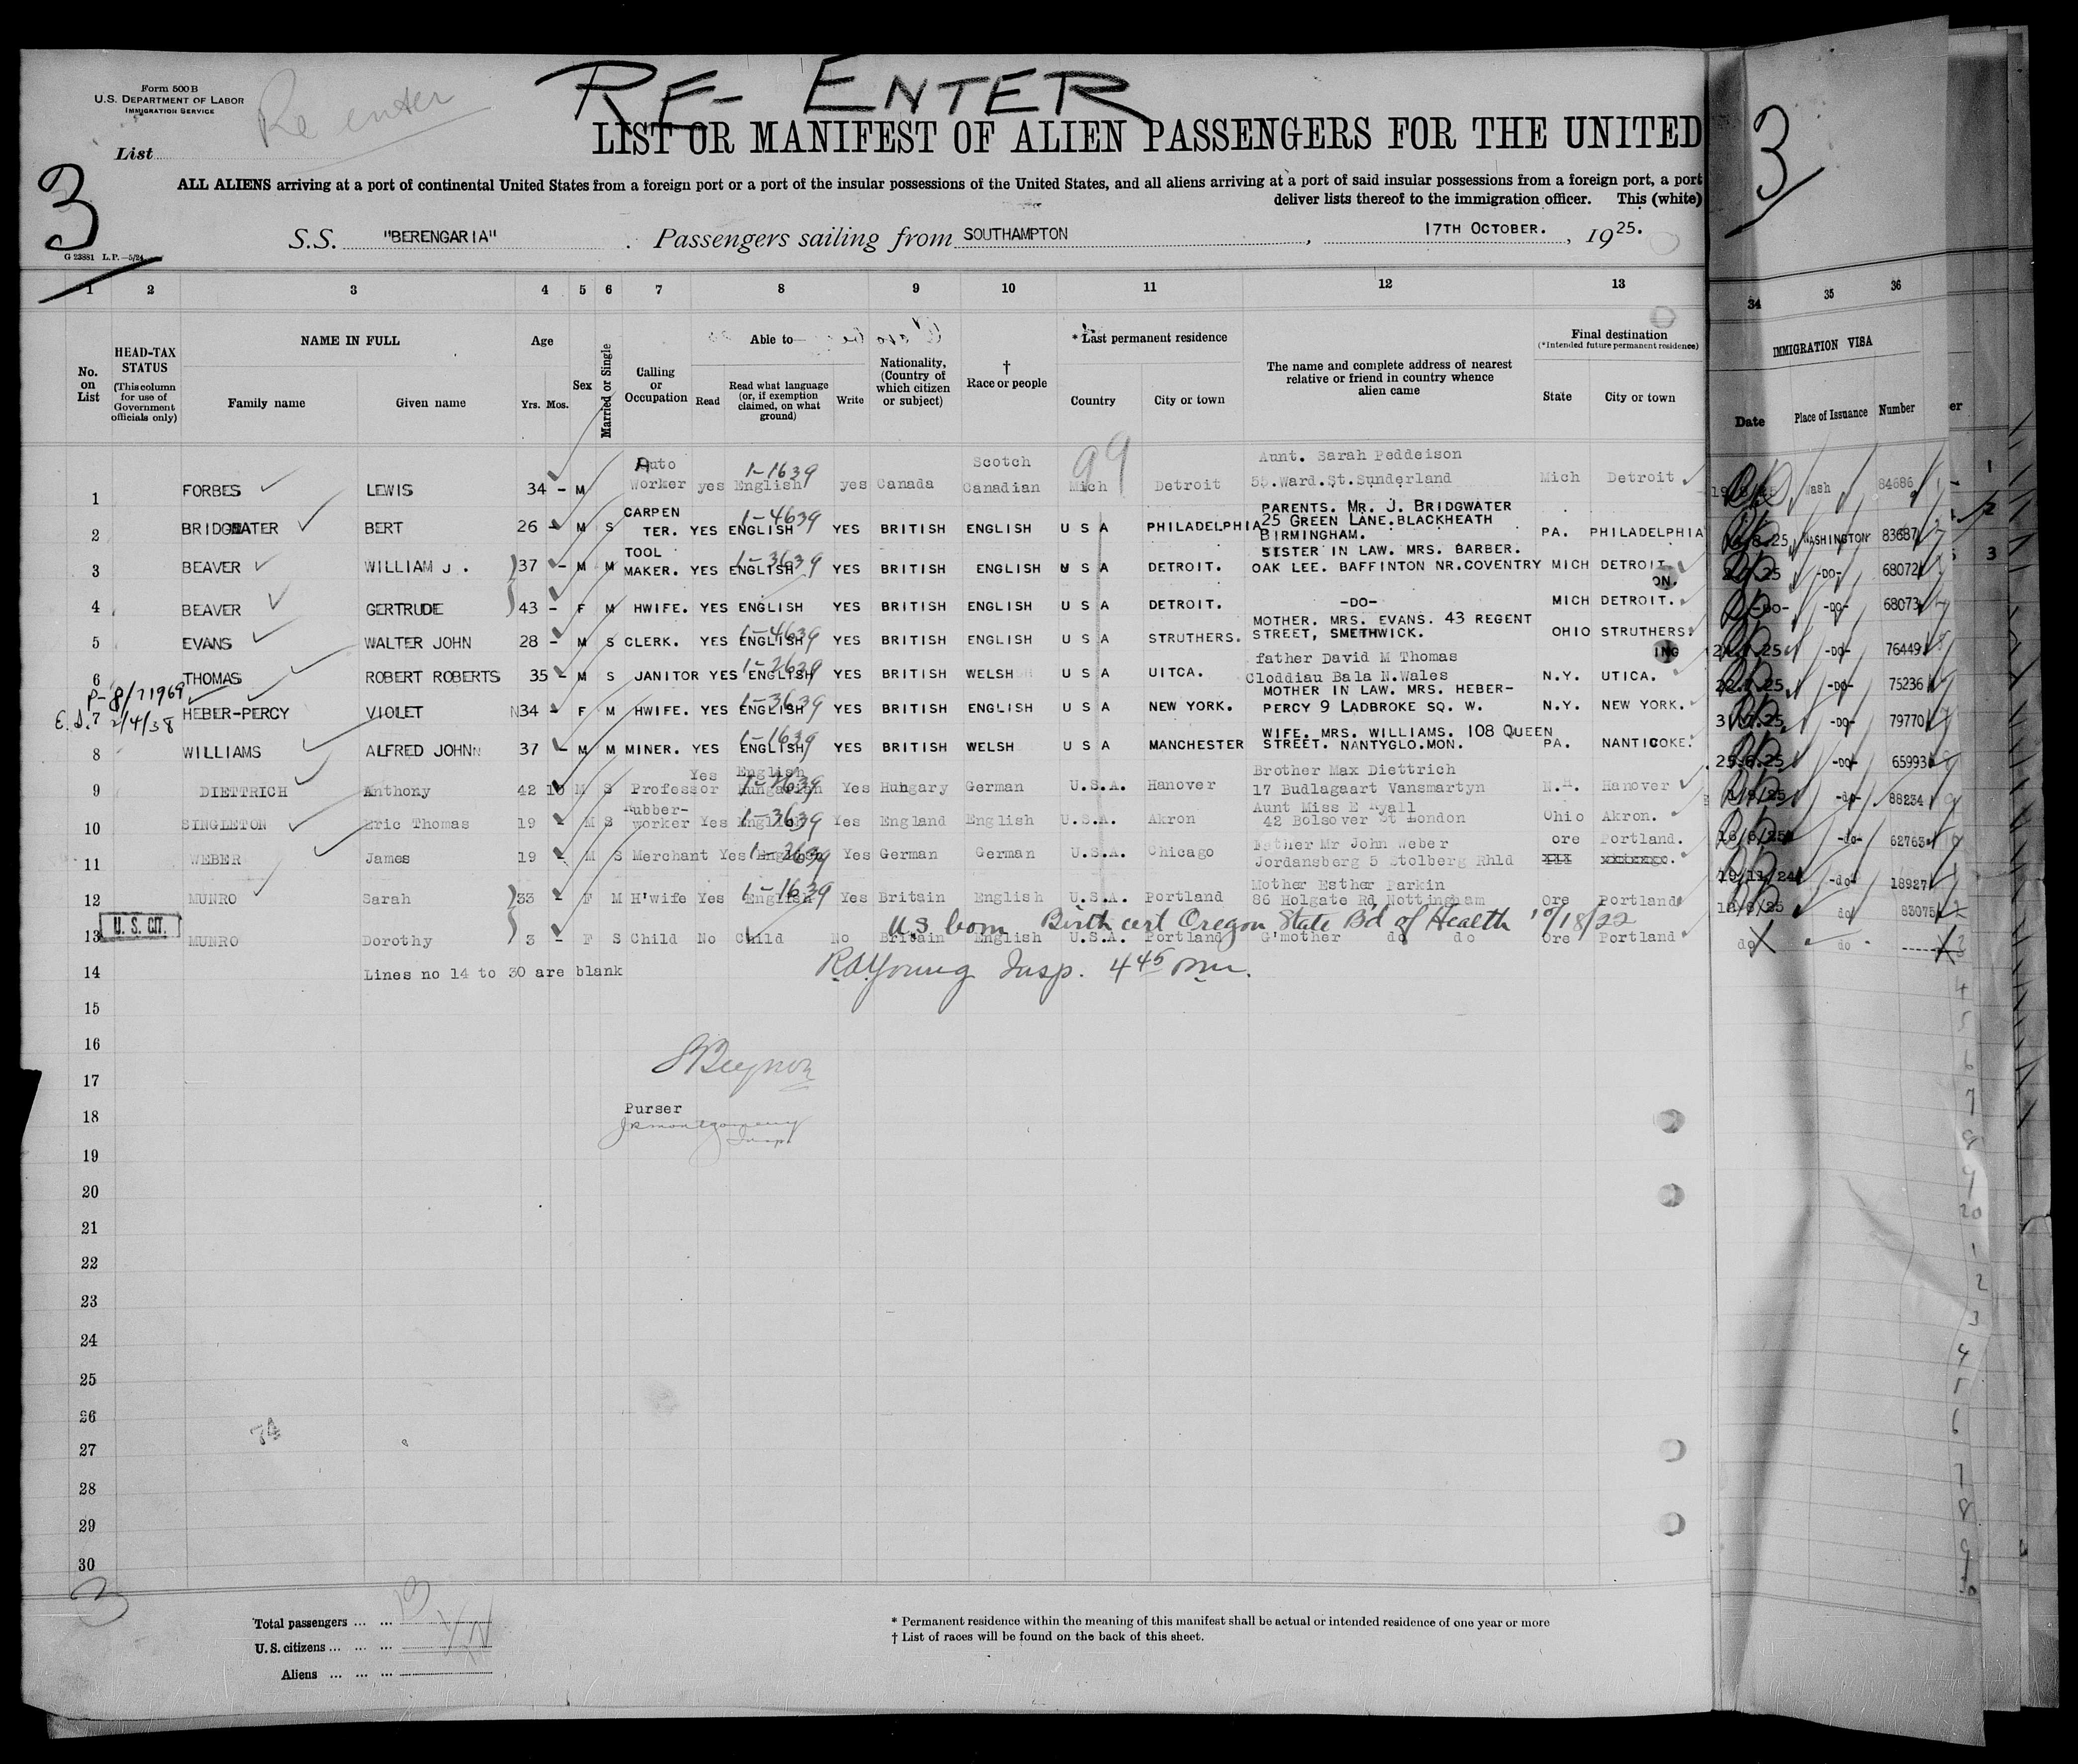 RE-ENTER
Form 500 B
U.S. DEPARTMENT OF LABOR
IMMIGRATION SERVICE
Re enter
List
3
LIST OR MANIFEST OF ALIEN PASSENGERS FOR THE UNITED
3
ALL ALIENS arriving at a port of continental United States from a foreign port or a port of the insular possessions of the United States, and all aliens arriving at a port of said insular possessions from a foreign port, a port
deliver lists thereof to the immigration officer. This (white)
S.S. "BERENGARIA" . Passengers sailing from SOUTHAMPTON , 17TH OCTOBER. , 1925.
G 23881 L.P.—5/24
1 2 3 4 5 6 7 8 9 10 11 12 13 34 35 36
No. on List
HEAD-TAX STATUS
(This column for use of Government officials only)
NAME IN FULL
Family name Given name
Age
Yrs. Mos.
Sex
Married or Single
Calling or Occupation
Able to—
Read
Read what language (or, if exemption claimed, on what ground)
Write
Nationality, (Country of which citizen or subject)
† Race or people
* Last permanent residence
Country City or town
The name and complete address of nearest relative or friend in country whence alien came
Final destination
(*Intended future permanent residence)
State City or town
IMMIGRATION VISA
Date Place of Issuance Number
99
1 FORBES LEWIS 34 - M Auto Worker yes English 1-1639 yes Canada Scotch Canadian Mich Detroit Aunt. Sarah Peddeison 55.Ward.St.Sunderland Mich Detroit Wash 84686
2 BRIDGWATER BERT 26 - M S CARPENTER. YES ENGLISH 1-4639 YES BRITISH ENGLISH U S A PHILADELPHIA PARENTS. MR. J. BRIDGWATER 25 GREEN LANE.BLACKHEATH BIRMINGHAM. PA. PHILADELPHIA WASHINGTON 83687
3 BEAVER WILLIAM J. 37 - M M TOOL MAKER. YES ENGLISH 1-3639 YES BRITISH ENGLISH U S A DETROIT. SISTER IN LAW. MRS. BARBER. OAK LEE. BAFFINTON NR.COVENTRY MICH DETROIT -DO- 68072
4 BEAVER GERTRUDE 43 - F M HWIFE. YES ENGLISH YES BRITISH ENGLISH U S A DETROIT. -DO- MICH DETROIT. -DO- -DO- 68073
5 EVANS WALTER JOHN 28 - M S CLERK. YES ENGLISH 1-4639 YES BRITISH ENGLISH U S A STRUTHERS. MOTHER. MRS. EVANS. 43 REGENT STREET, SMETHWICK. OHIO STRUTHERS. -DO- 76449
6 THOMAS ROBERT ROBERTS 35 - M S JANITOR YES ENGLISH 1-2639 YES BRITISH WELSH U S A UITCA. father David M Thomas Cloddiau Bala N.Wales N.Y. UTICA. -DO- 75236
P-8/71969
E.D. 2/4/38
7 HEBER-PERCY VIOLET 34 - F M HWIFE. YES ENGLISH 1-3639 YES BRITISH ENGLISH U S A NEW YORK. MOTHER IN LAW. MRS. HEBER-PERCY 9 LADBROKE SQ. W. N.Y. NEW YORK. 31.7.25 -DO- 79770
8 WILLIAMS ALFRED JOHN 37 - M M MINER. YES ENGLISH 1-1639 YES BRITISH WELSH U S A MANCHESTER WIFE. MRS. WILLIAMS. 108 QUEEN STREET. NANTYGLO.MON. PA. NANTICOKE. 25.6.25 -DO- 65993
9 DIETTRICH Anthony 42 10 M S Professor Yes English Hungarian Yes Hungary German U.S.A. Hanover Brother Max Diettrich 17 Budlagaart Vansmartyn N.H. Hanover -do- 88234
10 SINGLETON Eric Thomas 19 - M S Rubber-worker Yes English 1-3639 Yes England English U.S.A. Akron Aunt Miss E Ryall 42 Bolsover St London Ohio Akron. 16/6/25 -do- 62763
11 WEBER James 19 - M S Merchant Yes English 1-2639 Yes German German U.S.A. Chicago Father Mr John Weber Jordansberg 5 Stolberg Rhld ore Portland. 19/11/24 -do- 18927
12 MUNRO Sarah 33 - F M H'wife Yes English 1-1639 Yes Britain English U.S.A. Portland Mother Esther Parkin 86 Holgate Rd Nottingham Ore Portland 18/8/25 do 83075
U. S. CIT.
U.S. born Birth cert Oregon State Bd of Health 10/18/22
13 MUNRO Dorothy 3 - F S Child No Child No Britain English U.S.A. Portland G'mother do do Ore Portland do do
14 Lines no 14 to 30 are blank
R.A.Young Insp. 4 45 pm.
15
16
17
Purser
18
19
20
21
22
23
24
25
26
27
28
29
30
74
Total passengers
U.S. citizens
Aliens
* Permanent residence within the meaning of this manifest shall be actual or intended residence of one year or more
† List of races will be found on the back of this sheet.